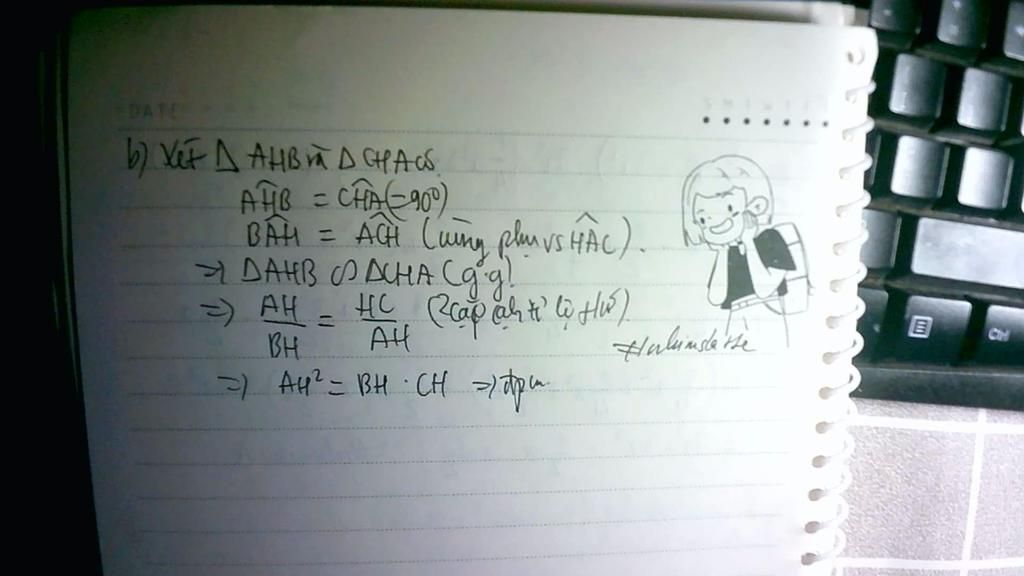 DATE
S M T W T F S
b) Xét Δ AHB và Δ CHA có
AĤB = CĤA (=90⁰)
BÂH = AĈH (cùng phụ vs HÂC).
=> ΔAHB ∽ ΔCHA (g.g)
=> AH/BH = HC/AH (2 cặp cạh tỉ lệ t/ứ)
=> AH² = BH . CH => đpcm
Ctrl